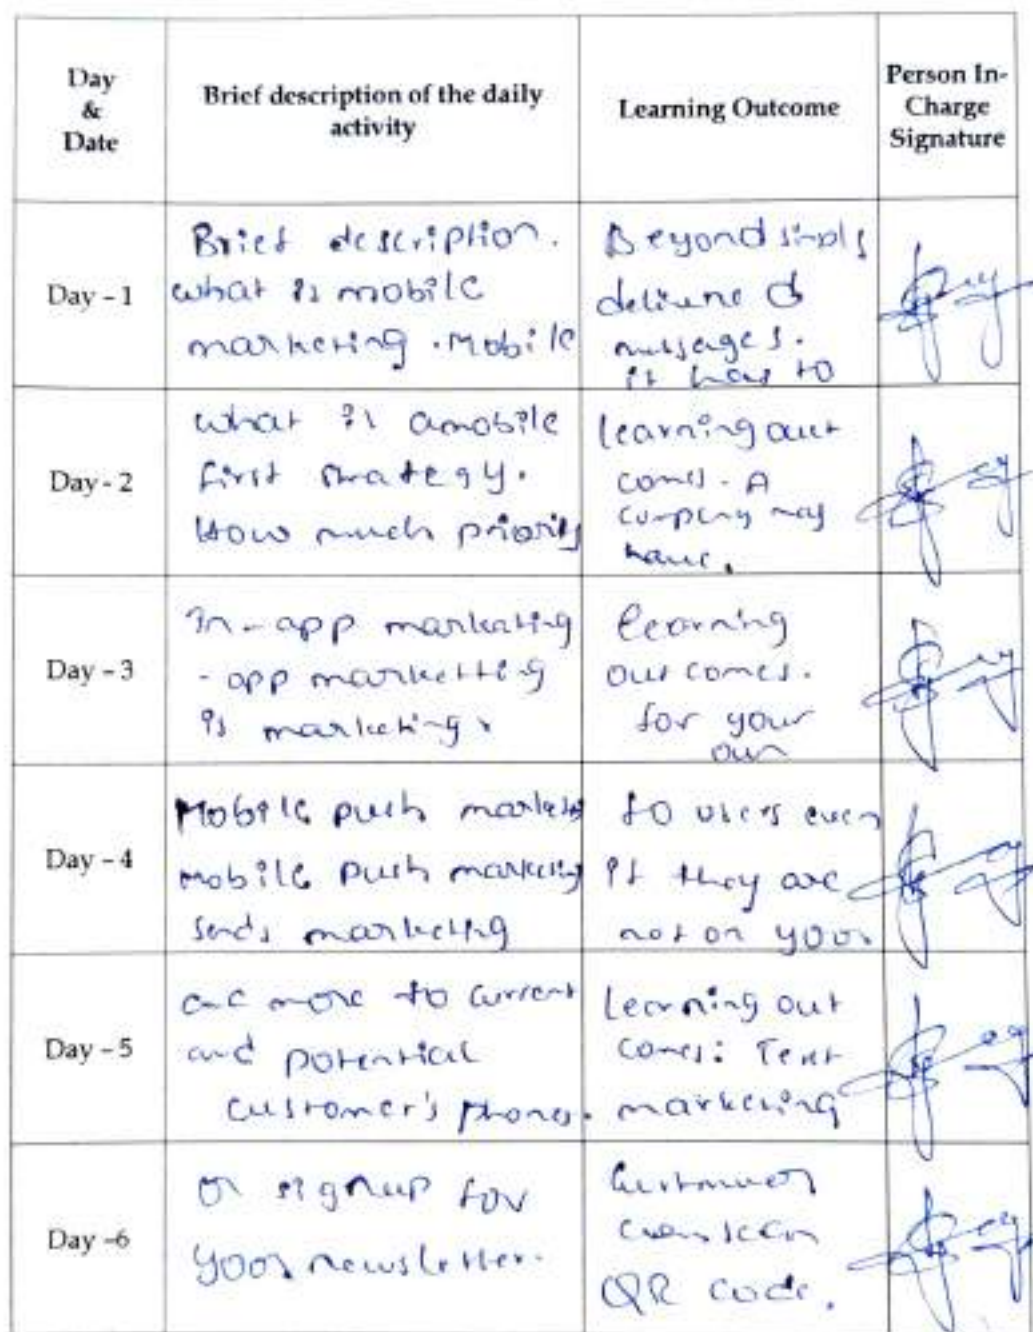 Day
&
Date
Brief description of the daily
activity
Learning Outcome
Person In-
Charge
Signature
Day - 1
Brief description.
what is mobile
marketing. Mobile
Beyond simply
messages.
it have to
Day - 2
what is a mobile
first strategy.
How much priority
learning out
comes. A
company may
have.
Day - 3
In-app marketing
-app marketting
is marketing.
learning
outcomes.
for your
own
Day - 4
Mobile push
mobile push marketing
sends marketing
to users even
if they are
not on your
Day - 5
and more to current
and potential
customer's phones.
Learning out
comes: Text
marketing
Day -6
or signup for
your newsletter.
Customer
can scan
QR code.